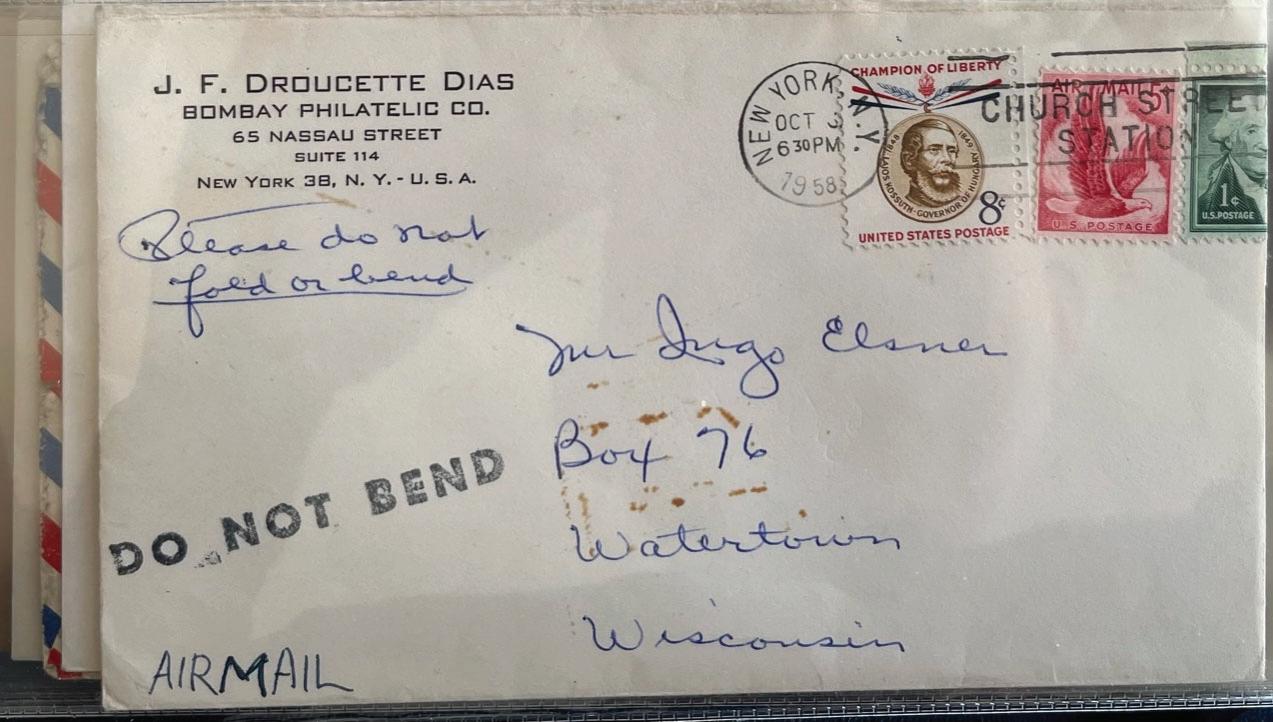 J. F. DROUCETTE DIAS
BOMBAY PHILATELIC CO.
65 NASSAU STREET
SUITE 114
NEW YORK 38, N. Y. - U. S. A.
Please do not
fold or bend
NEW YORK, N.Y.
OCT
6 30 PM
1958
CHURCH STREET
STATION
CHAMPION OF LIBERTY
1848 1849
LAJOS KOSSUTH - GOVERNOR OF HUNGARY
8¢
UNITED STATES POSTAGE
AIR MAIL 5¢
U.S. POSTAGE
1¢
U.S. POSTAGE
Mr Ingo Elsner
Box 76
Watertown
Wisconsin
DO NOT BEND
AIRMAIL